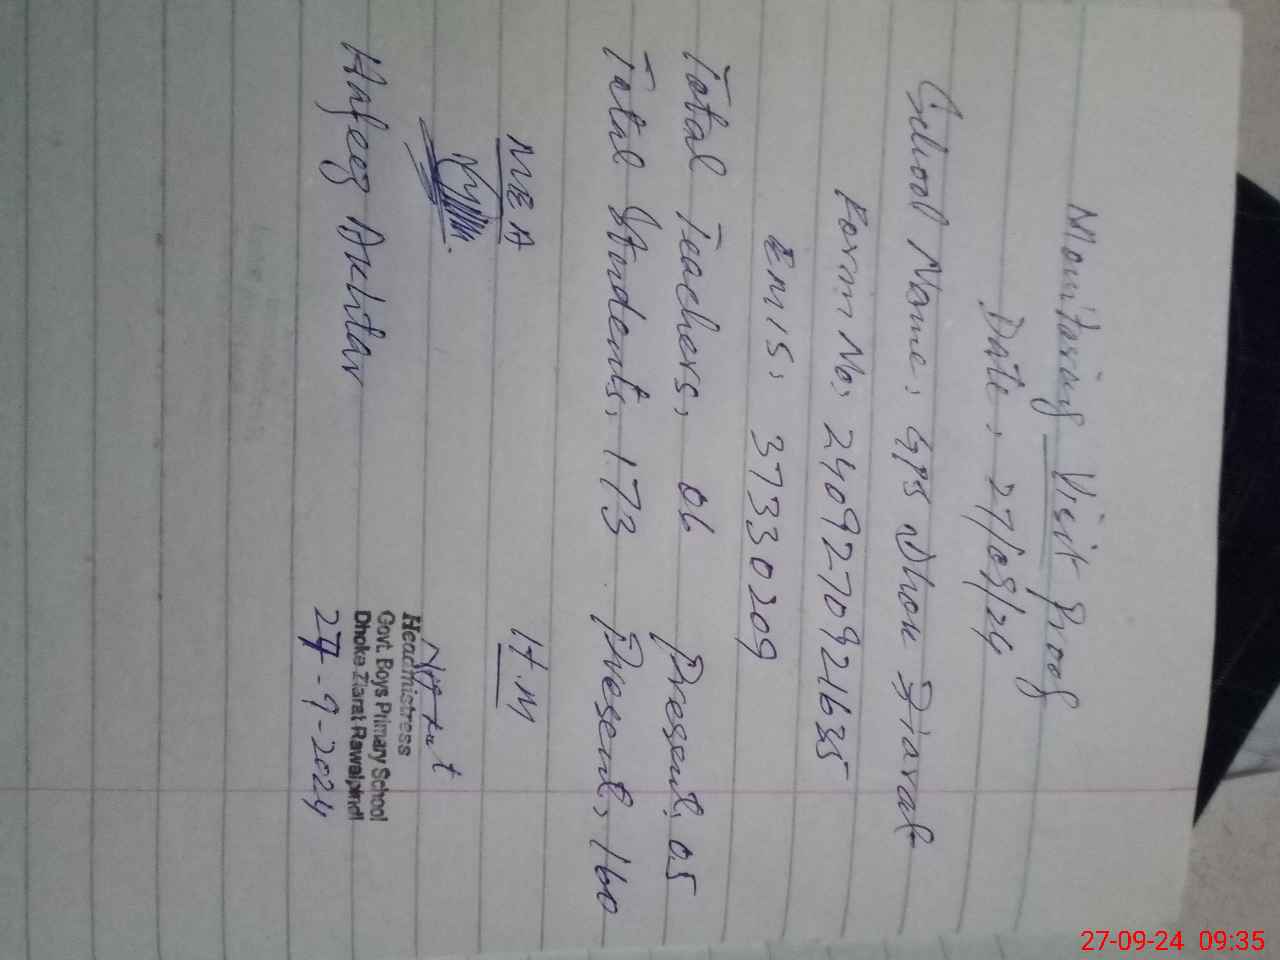 Monitoring Visit Proof
Date: 27/09/24
School Name: GPS Dhok Ziarat
Form No: 2409270921635
EMIS: 37330209
Total Teachers: 06 Present: 05
Total Students: 173 Present: 160
MEA H.M
Hafeez Akhtar
Headmistress
Govt. Boys Primary School
Dhoke Ziarat Rawalpindi
27-9-2024
27-09-24 09:35